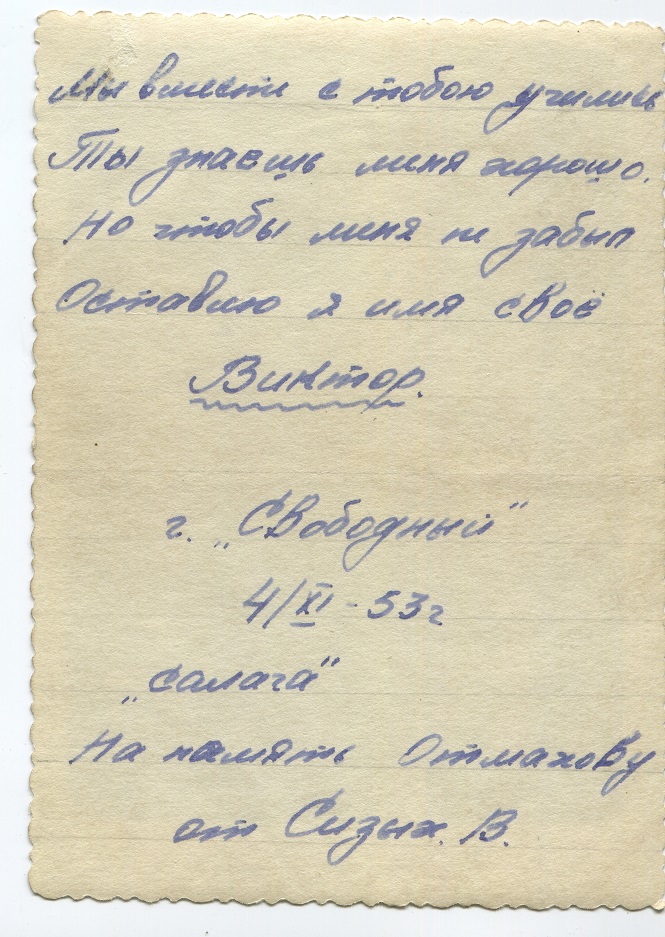 Мы вместе с тобою учились
Ты знаешь меня хорошо.
Но чтобы меня не забыл
Оставлю я имя своё
Виктор.
г. „Свободный"
4/XI - 53г
„салага"
На память Отмахову
от Сизых. В.